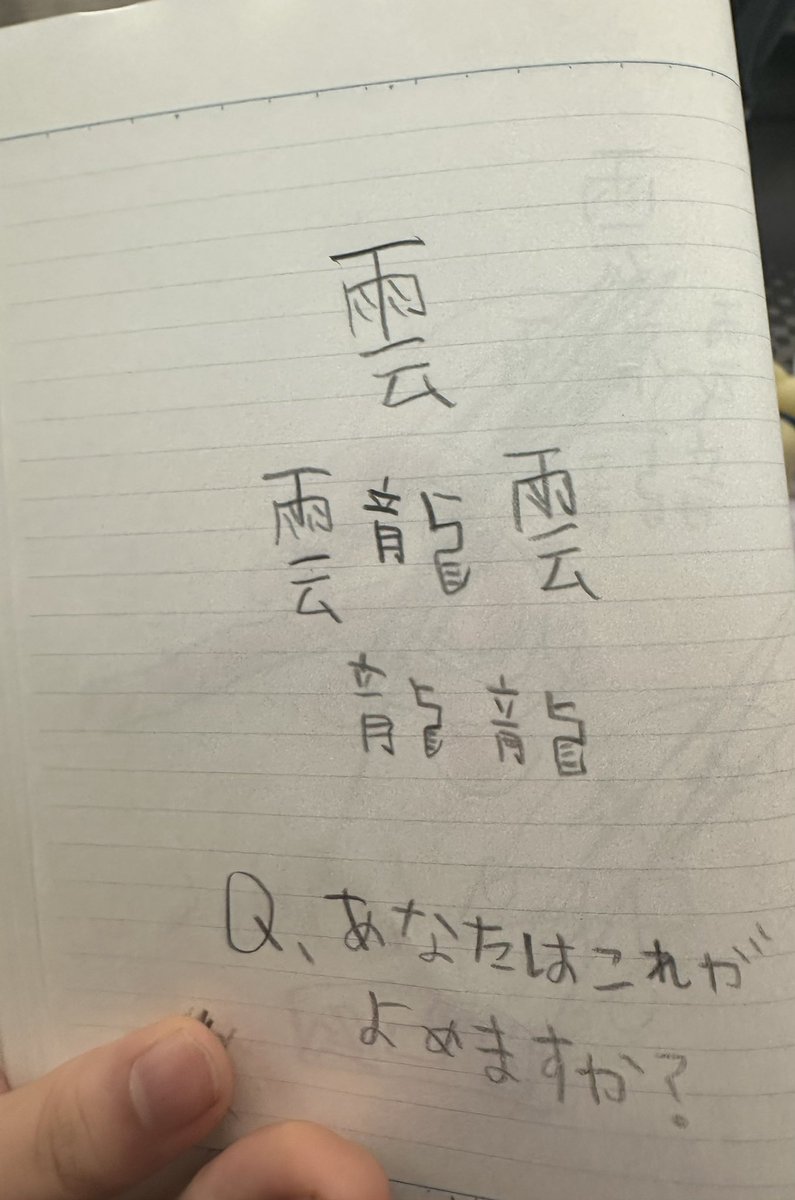 雲
雲龍雲
龍龍
Q、あなたはこれが
よめますか？